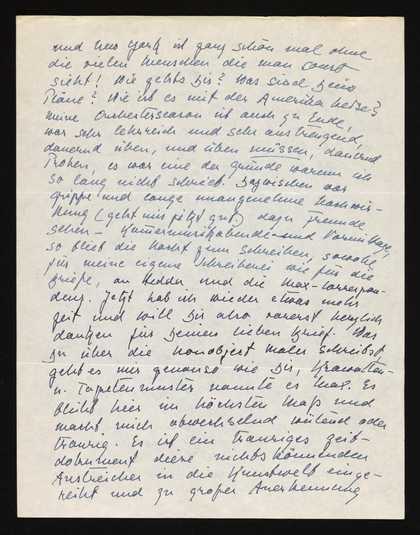 und New York ist ganz schön mal ohne
die vielen Menschen die man sonst
sieht! Wie gehts Dir? Was sind Deine
Pläne? Wie ist es mit der Amerika Reise?
meine Orchestersaison ist auch zu Ende,
war sehr lehrreich und sehr anstrengend,
dauernd üben, und üben müssen, dauernd
Proben, es war eine der gründe warum ich
so lang nicht schrieb. Dazwischen war
grippe und lange unangenehme Nachwir-
kung (geht mir jetzt gut) dazu Freunde
sehen - Kammermusikabende und
so bleibt die Nacht zum Schreiben, sowohl
für meine eigene Schreiberei wie für die
Briefe, an Hedda und die Max-Correspon-
denz. Jetzt hab ich wieder etwas mehr
zeit und will Dir also zuerst herzlich
danken für Deinen lieben Brief. Was
Du über die nonobject maler schreibst
geht es mir genauso wie Dir, Krawatten-
u. Tapetenmuster nannte es Max. Es
blüht hier im höchsten Mass und
macht mich abwechselnd wütend oder
traurig. Es ist ein trauriges zeit-
dokument diese nichts könnenden
Anstreicher in die Kunstwelt einge-
reiht und zu großer Anerkennung